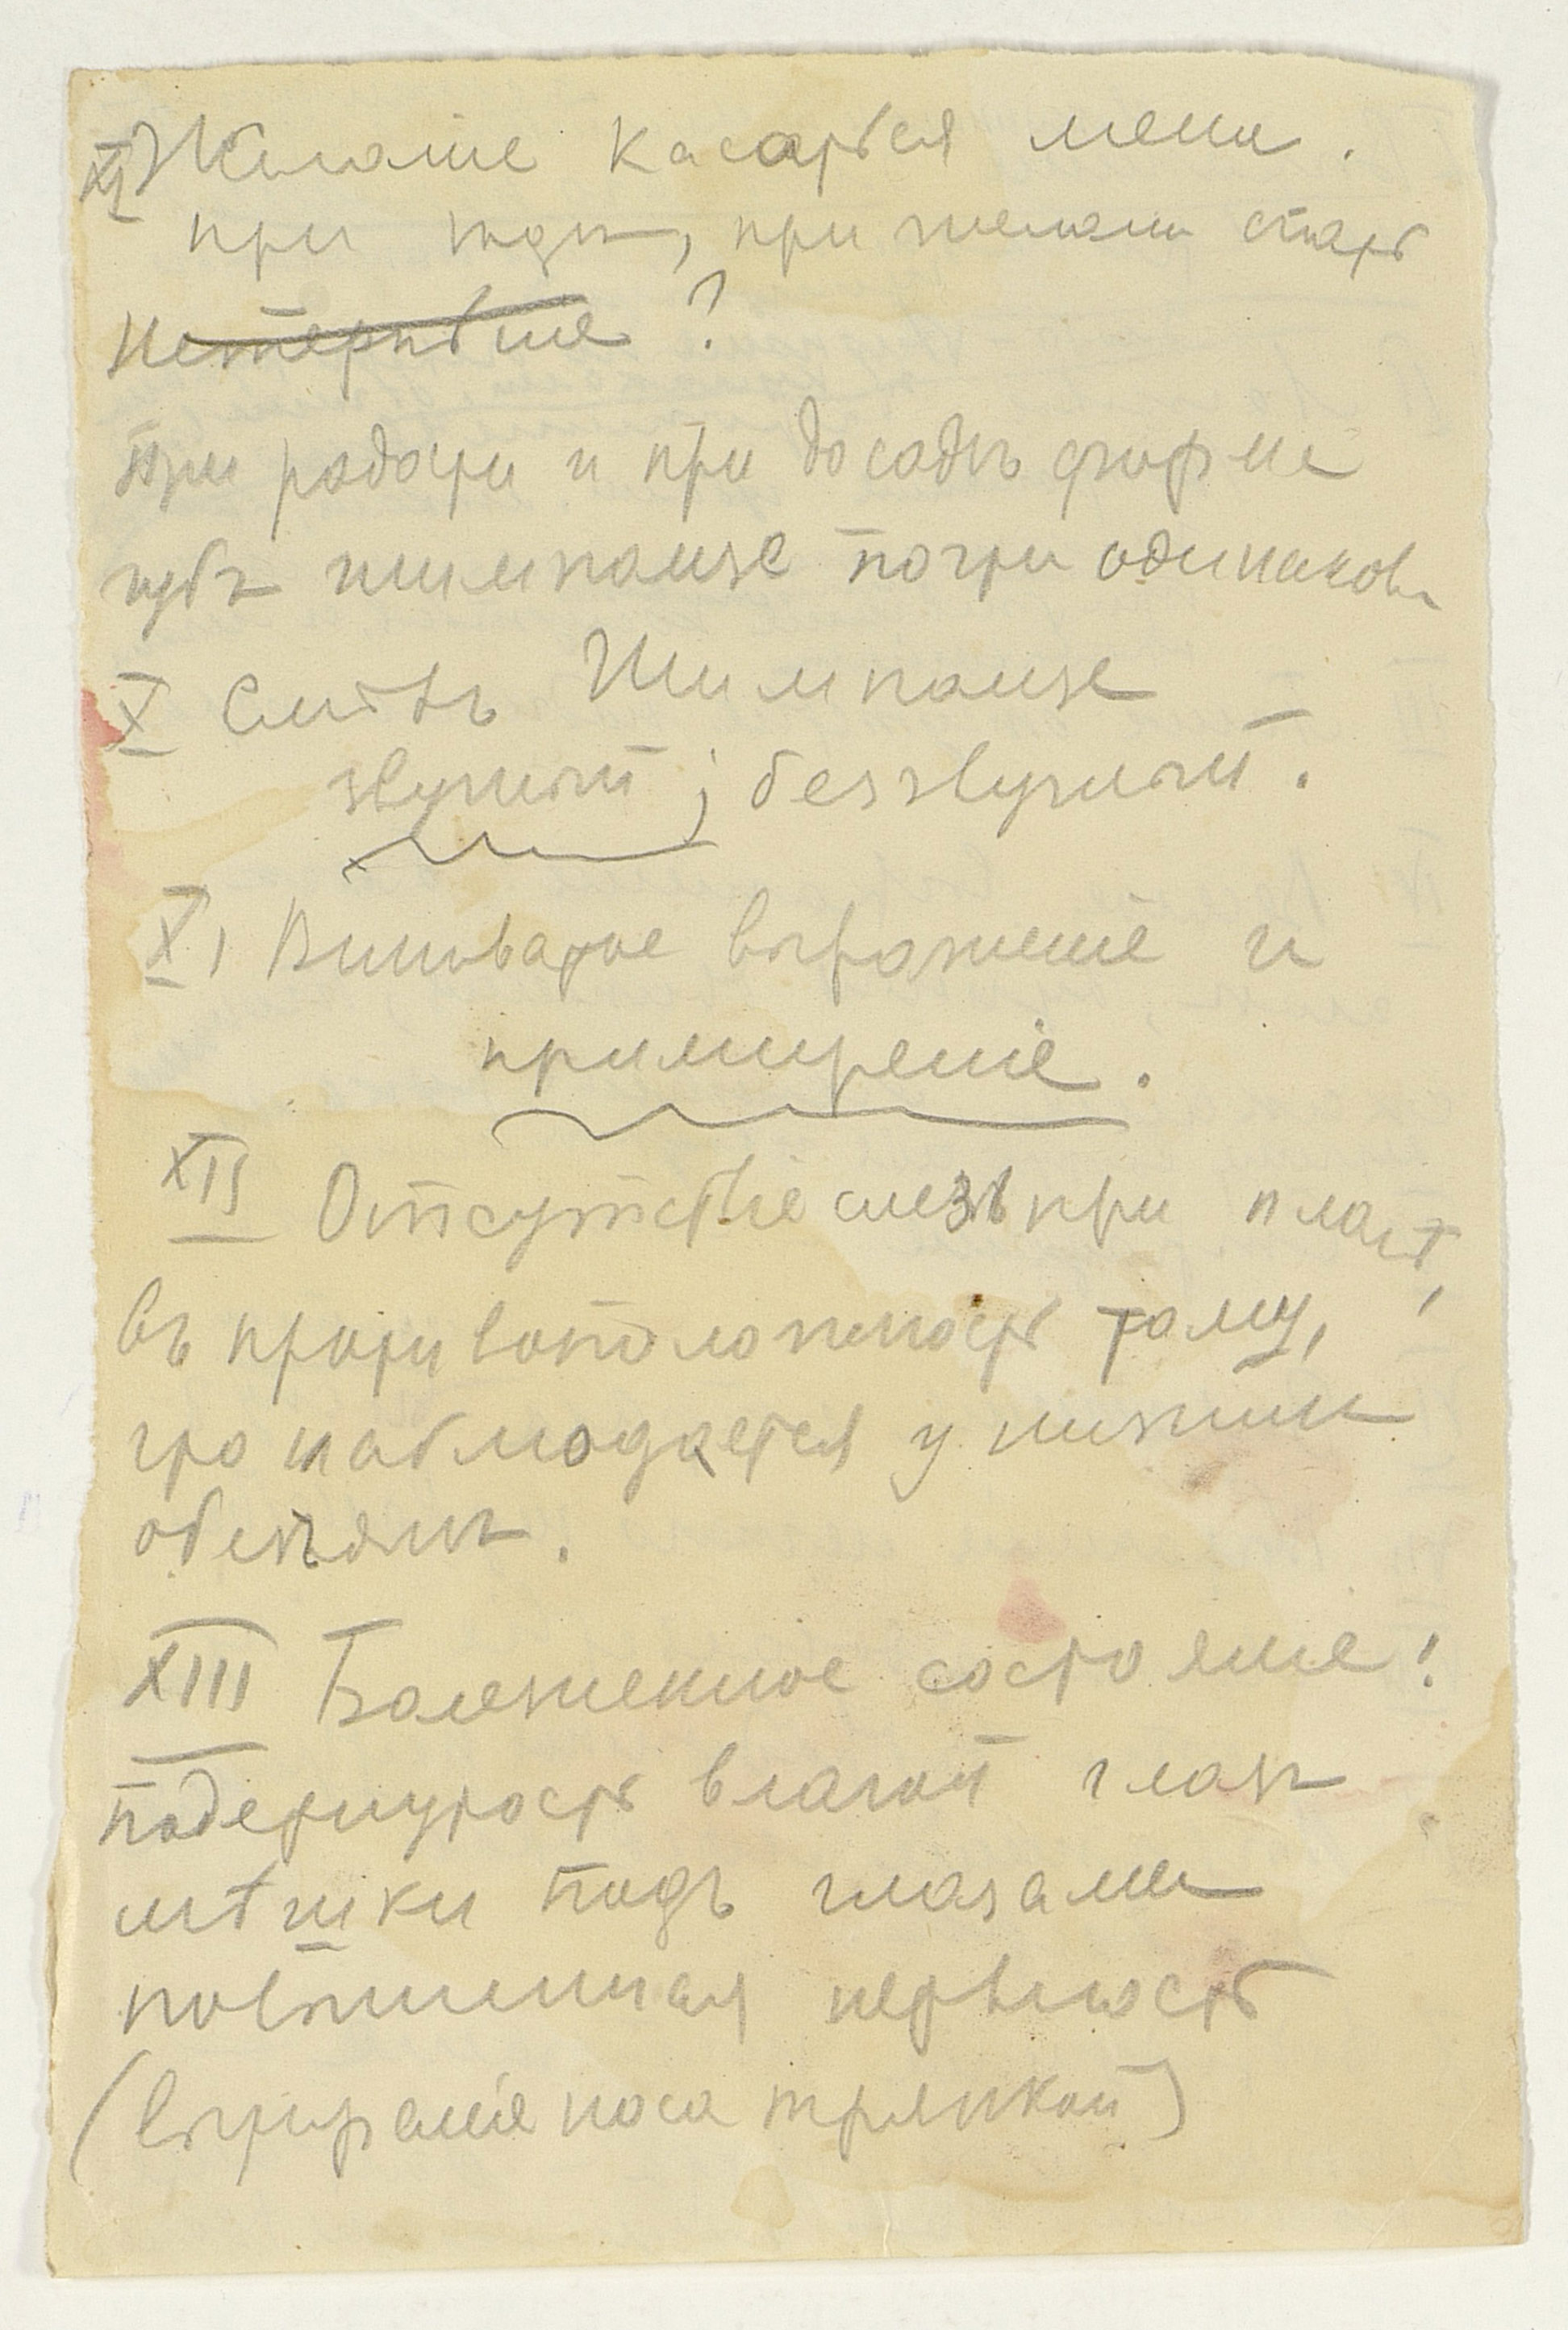 XI Желаніе касаться меня.
при ѣдѣ, при желаніи спать
Нетерпѣніе ?
При радости и при досадѣ
губъ шимпанзе почти одинаков
X Смѣхъ Шимпанзе
звучный; беззвучный.
XI Виноватое выраженіе и
примиреніе.
XII Отсутствіе слезъ при плачѣ,
въ противоположность тому,
что наблюдается у низшихъ
обезьянъ.
XIII Болезненное состояніе!
подернутость влагой глазъ
мѣшки подъ глазами
повышенная нервность
(вытираніе носа тряпкой)